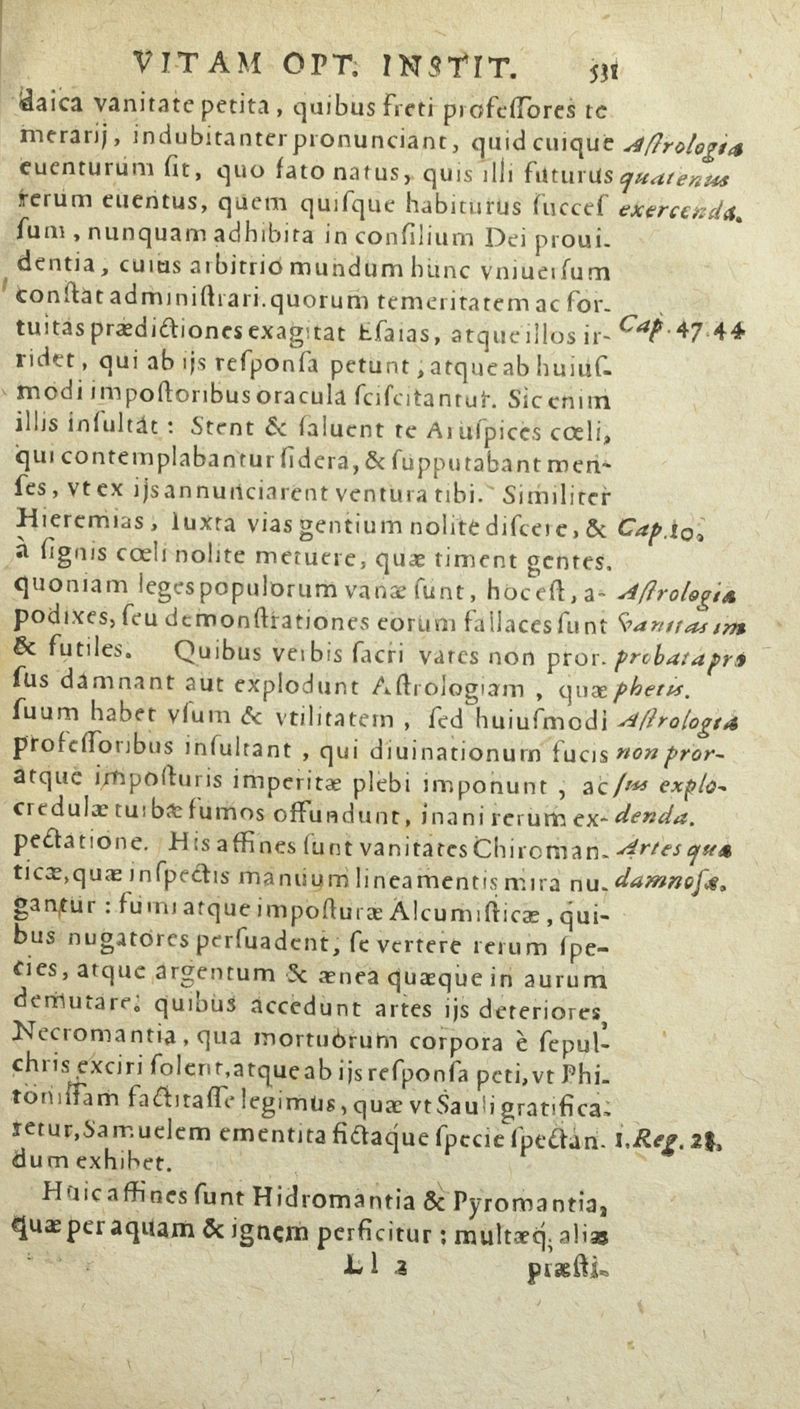 VITAM OPT. INSTIT. 531
daica vanitate petita, quibus freti profeſſores te
merarij, indubitanter pronunciant, quid cuique
euenturum ſit, quo fato natus, quis illi futurus
rerum euentus, quem quiſque habiturus ſucceſ
ſum, nunquam adhibita in conſilium Dei proui-
dentia, cuius arbitrio mundum hunc vniuerſum
conſtat adminiſtrari. quorum temeritatem ac for-
tuitas prædictiones exagitat Eſaias, atque illos ir-
ridet, qui ab ijs reſponſa petunt, atque ab huiuſ-
modi impoſtoribus oracula ſciſcitantur. Sic enim
illis inſultat: Stent & ſaluent te Aruſpices cœli,
qui contemplabantur ſidera, & ſupputabant men-
ſes, vt ex ijs annunciarent ventura tibi. Similiter
Hieremias, iuxta vias gentium nolite diſcere, &
à ſignis cœli nolite metuere, quæ timent gentes.
quoniam leges populorum vanæ ſunt, hoc eſt, a-
podixes, ſeu demonſtrationes eorum fallaces ſunt
& futiles. Quibus verbis ſacri vates non pror-
ſus damnant aut explodunt Aſtrologiam, quæ
ſuum habet vſum & vtilitatem, ſed huiuſmodi
profeſſoribus inſultant, qui diuinationum fucis
atque impoſturis imperitæ plebi imponunt, ac
credulæ turbæ fumos offundunt, inani rerum ex-
pectatione. His affines ſunt vanitates Chiroman-
ticæ, quæ inſpectis manuum lineamentis mira nu-
gantur: fumi atque impoſturæ Alcumiſticæ, qui-
bus nugatores perſuadent, ſe vertere rerum ſpe-
cies, atque argentum & ænea quæque in aurum
demutare: quibus accedunt artes ijs deteriores,
Necromantia, qua mortuórum corpora è ſepul-
chris exciri ſolent, atque ab ijs reſponſa peti, vt Phi-
toniſſam factitaſſe legimus, quæ vt Sauli gratifica-
retur, Samuelem ementita fictaque ſpecie ſpectan-
dum exhibet.
Huic affines ſunt Hidromantia & Pyromantia,
quæ per aquam & ignem perficitur; multæq; aliæ
Ll 2 præſti-
Aſtrologia
quatenus
exercenda.
Cap. 47. 44
Cap. 10.
Aſtrologia
vanitas im
probata pro
phetis.
Aſtrologia
non pror-
ſus explo-
denda.
Artes quæ
damnoſæ.
1. Reg. 28.